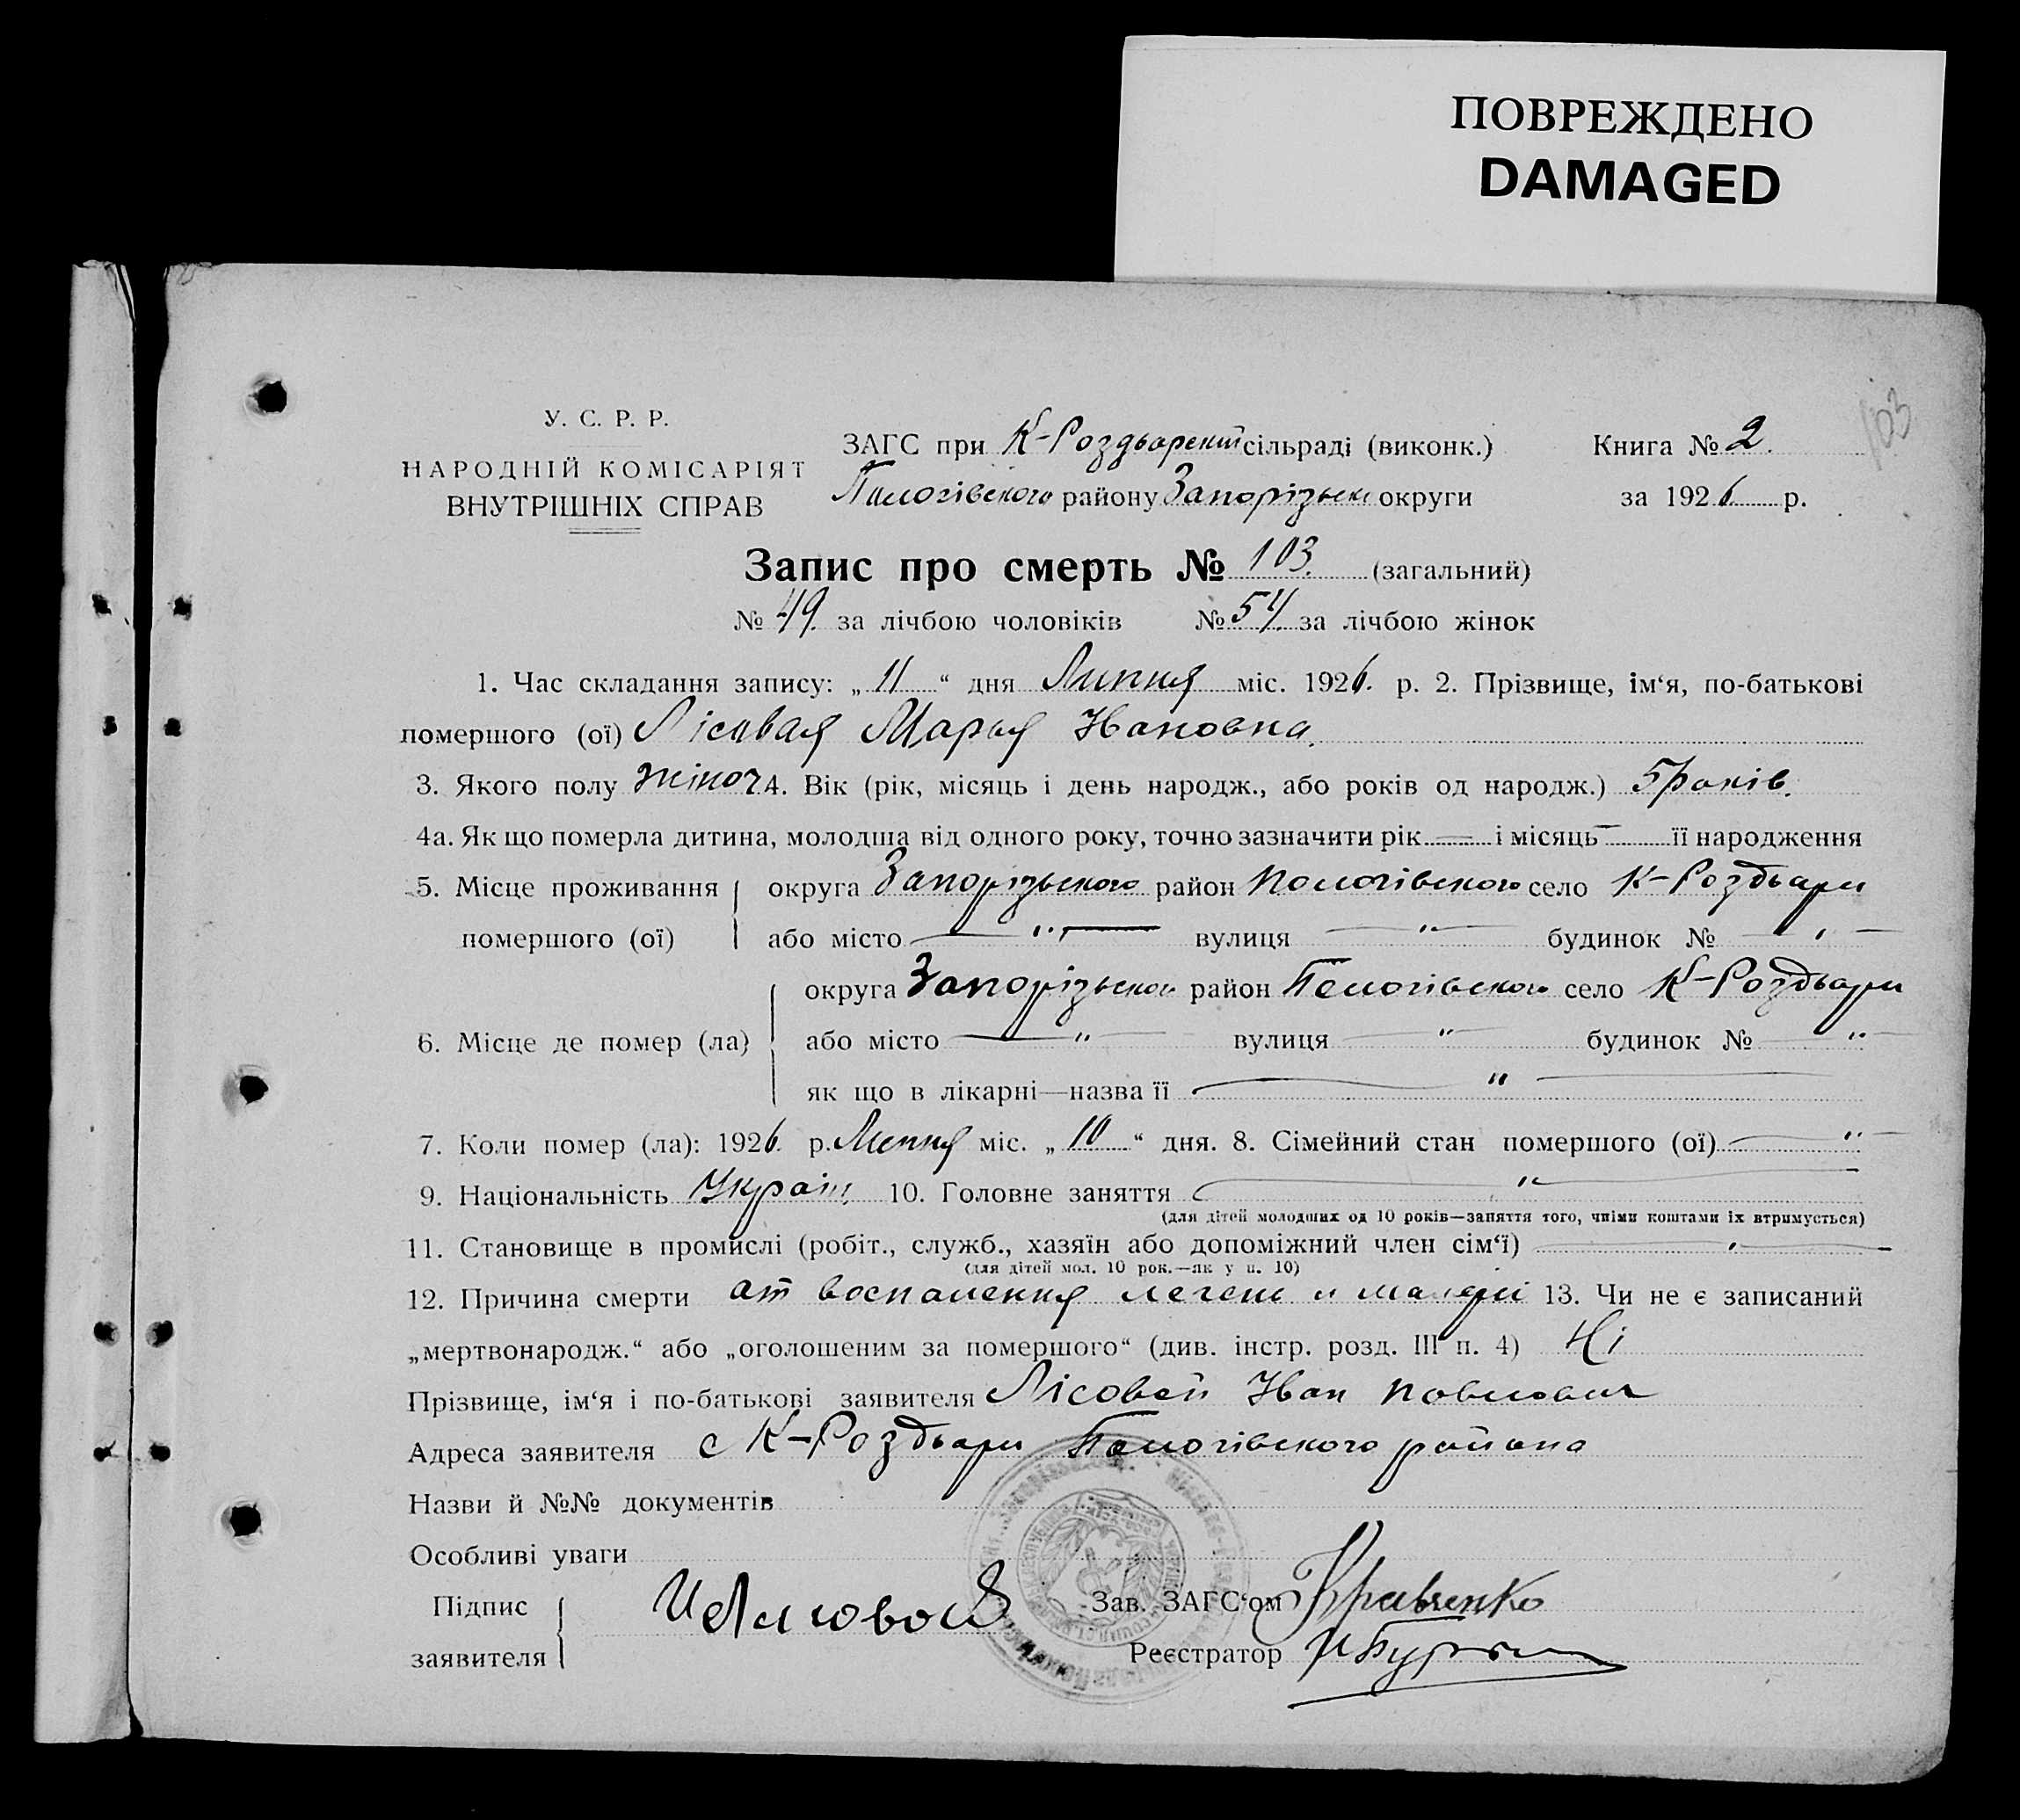 ПОВРЕЖДЕНО
DAMAGED
103
У. С. Р. Р.
НАРОДНІЙ КОМІСАРІЯТ
ВНУТРІШНІХ СПРАВ
ЗАГС при К-Роздорскій сільраді (виконк.) Книга № 2.
Пологівского району Запорізьк округи за 1926 р.
Запис про смерть № 103. (загальний)
№ 49. за лічбою чоловіків № 54. за лічбою жінок
1. Час складання запису: „11“ дня Липня міс. 1926. р. 2. Прізвище, ім‘я, по-батькові
помершого (ої) Лісовая Марья Ивановна.
3. Якого полу жіноч 4. Вік (рік, місяць і день народж., або років од народж.) 5 років.
4а. Як що померла дитина, молодша від одного року, точно зазначити рік — і місяць — її народження
5. Місце проживання округа Запорізьского район Пологівского село К-Роздьори
помершого (ої) або місто — " — вулиця — " — будинок № — " —
округа Запорізьског район Пологівского село К-Роздьори
6. Місце де помер (ла) або місто — " — вулиця — " — будинок № — " —
як що в лікарні—назва її — " —
7. Коли помер (ла): 1926. р. Липня міс. „10“ дня. 8. Сімейний стан помершого (ої) — " —
9. Національність Україн. 10. Головне заняття — " —
(для дітей молодших од 10 років—заняття того, чиїми коштами їх втримується)
11. Становище в промислі (робіт., служб., хазяїн або допоміжний член сім‘ї) — " —
(для дітей мол. 10 рок.—як у п. 10)
12. Причина смерти от воспаления легких и 13. Чи не є записаний
„мертвонародж.“ або „оголошеним за помершого“ (див. інстр. розд. III п. 4) Ні
Прізвище, ім‘я і по-батькові заявителя Лісовой Иван Повлович
Адреса заявителя с К-Роздьори Пологівского района
Назви й №№ документів
Особливі уваги
Підпис заявителя И Лисовой
Зав. ЗАГС‘ом Кравченко
Реєстратор